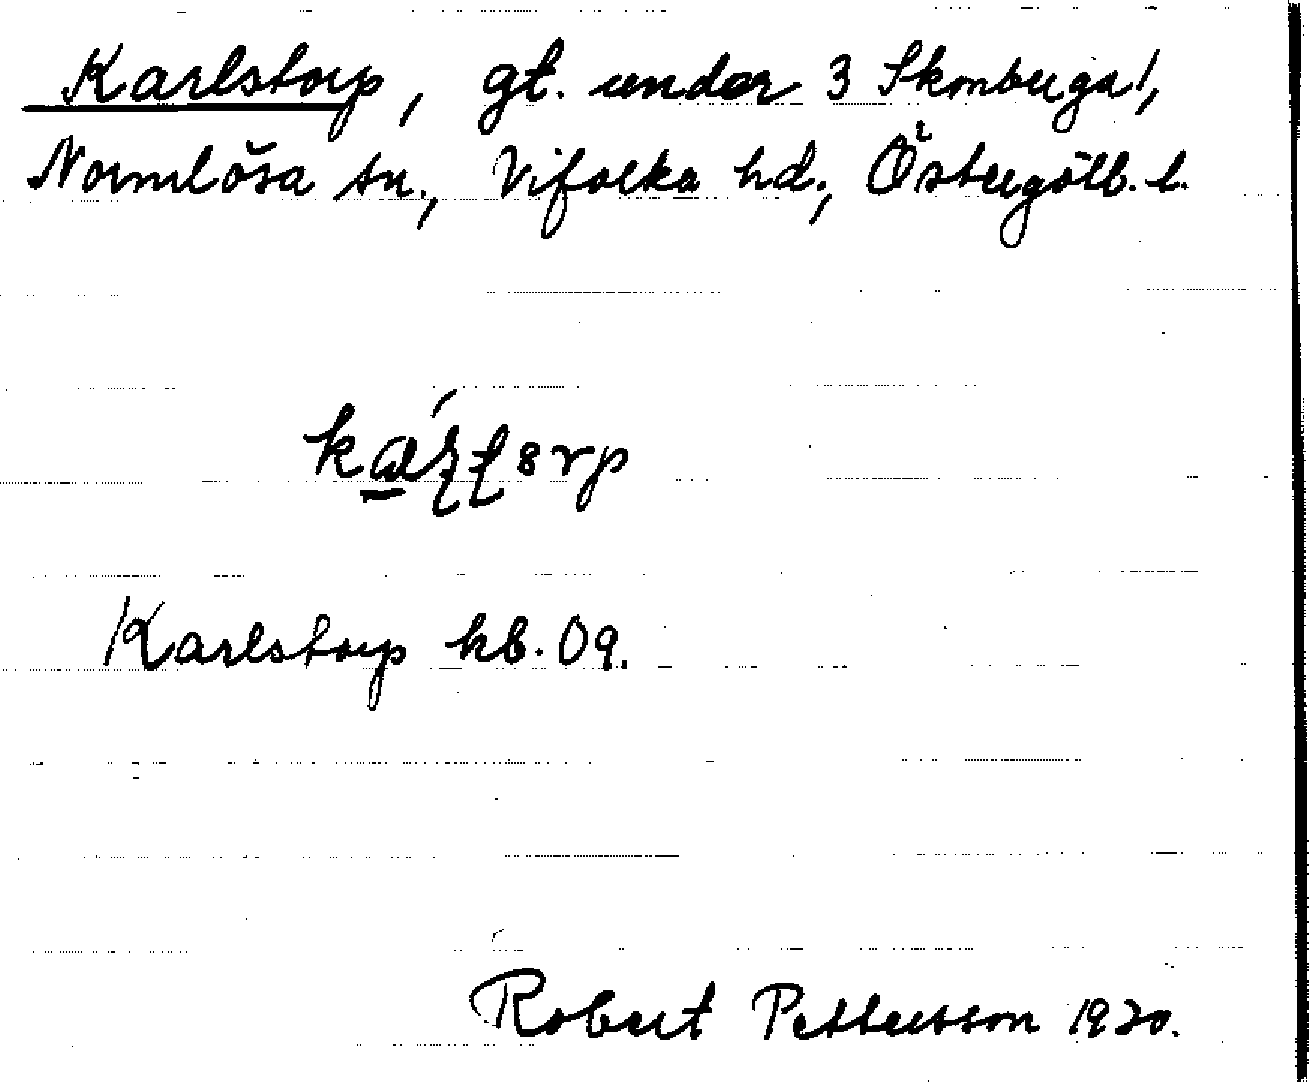 Karlstorp, gt. under 3 Skonberga,
Normlösa sn., Vifolka hd., Östergötl. l.
Karlstorp kb. 09.
Robert Pettersson 1920.